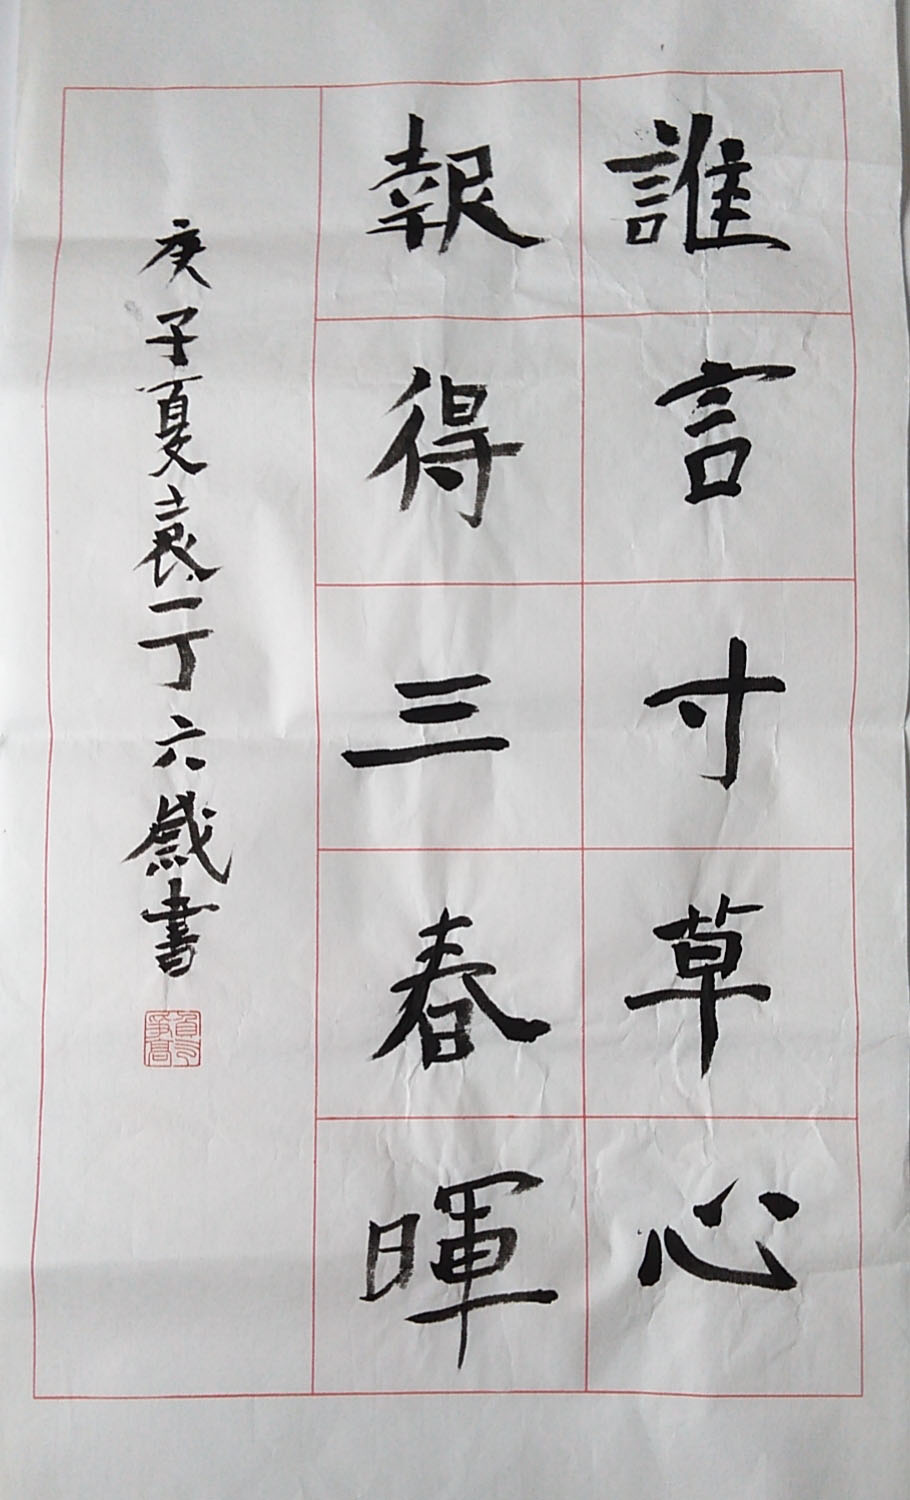 誰言寸草心
報得三春暉
庚子夏袁一丁六歲書